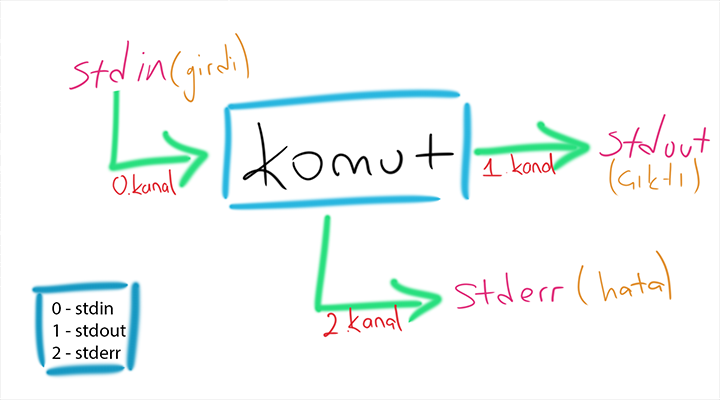 stdin (girdi)
0.kanal
komut
1.kanal
stdout
(Çıktı)
2.kanal
stderr (hata)
0 - stdin
1 - stdout
2 - stderr